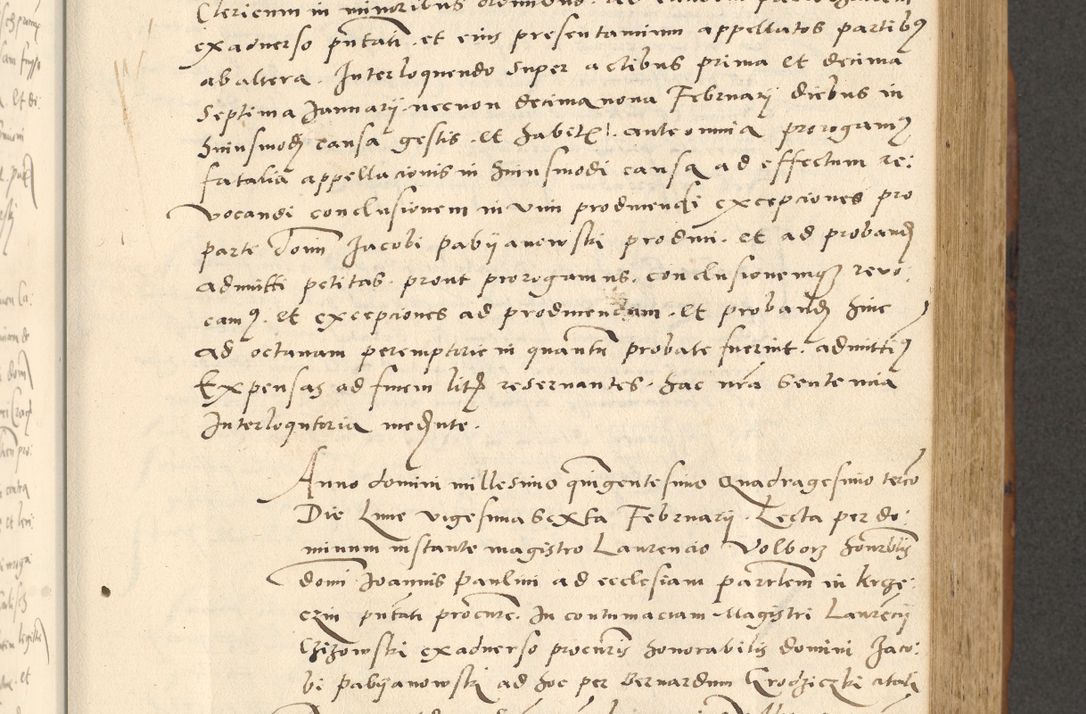 Clericum in minoribus
exadverso pntati et eius presentamium appellatos partibus
ab altera. Interloquendo super actibus prima et decima
septima Januarij necnon decimanona Februarij diebus in
huiusmodi causa gestis et habitis ante omnia prorogamus
fatalia appellacionis in huiusmodi causa ad effectum re:
vocandi conclusionem in vim producendi excepciones pro
parte domi Jacobi Pabijanowski produci et ad proband
admitti petitas prout prorogamus conclusionemque revo:
camus et excepciones ad producendam et proband hinc
ad octavam peremptorie in quantum probate fuerint admittimus
Expensas ad finem litis reservantes hac nra Sentencia
Interloqutoria mediante.
Anno domini millesimo quingentesimo Quadragesimo tercio
Die Lune vigesima Sexta Februarij. Lecta per do:
minum instante magistro Laurencio Volborz honorabilis
domi Joannis Paulini ad ecclesiam parrlem in Krze:
czin pntati procure. In contumaciam Magistri Laurecij
Czizowski exadverso procuris honorabilis domini Jaco:
bi Pabijanowski ad hoc per Bernardum Grodziczki citati